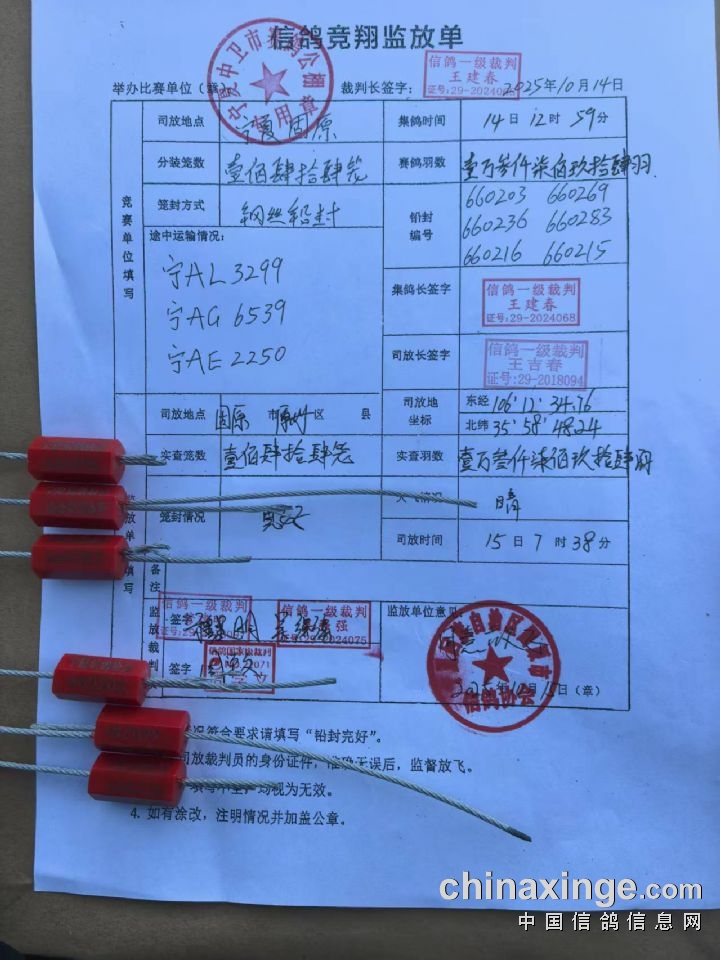 信鸽竞翔监放单
举办比赛单位（章） 裁判长签字： 2025年10月14日
信鸽一级裁判
王建春
证号:29-2024068
宁夏中卫市
专用章
竞赛单位填写
司放地点 宁夏固原 集鸽时间 14日12时59分
分装笼数 壹佰肆拾肆笼 赛鸽羽数 壹万叁仟柒佰玖拾肆羽
笼封方式 钢丝铅封 铅封编号
660203 660269
660236 660283
660216 660215
途中运输情况：
宁AL3299
宁AG6539
宁AE2250
集鸽长签字
信鸽一级裁判
王建春
证号:29-2024068
司放长签字
信鸽一级裁判
王吉春
证号:29-2018094
司放地点 固原市原州区 县 司放地坐标 东经 106°12′34.76
北纬 35°58′48.24
实查笼数 壹佰肆拾肆笼 实查羽数 壹万叁仟柒佰玖拾肆羽
笼封情况 完好 天气情况 晴
司放时间 15日7时38分
备注
监放裁判 签字
信鸽一级裁判
信鸽一级裁判
签字
监放单位意见
信鸽协会
10月15日（章）
况符合要求请填写“铅封完好”。
司放裁判员的身份证件，准确无误后，监督放飞。
均视为无效。
4. 如有涂改，注明情况并加盖公章。
chinaxinge.com
中国信鸽信息网